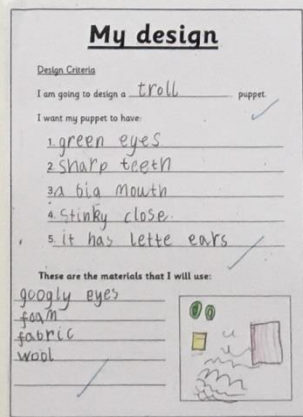 My design
Design Criteria
I am going to design a troll puppet.
I want my puppet to have:
1. green eyes
2. sharp teeth
3. a big mouth
4. stinky close.
5. it has lette ears
These are the materials that I will use:
googly eyes
foam
fabric
wool